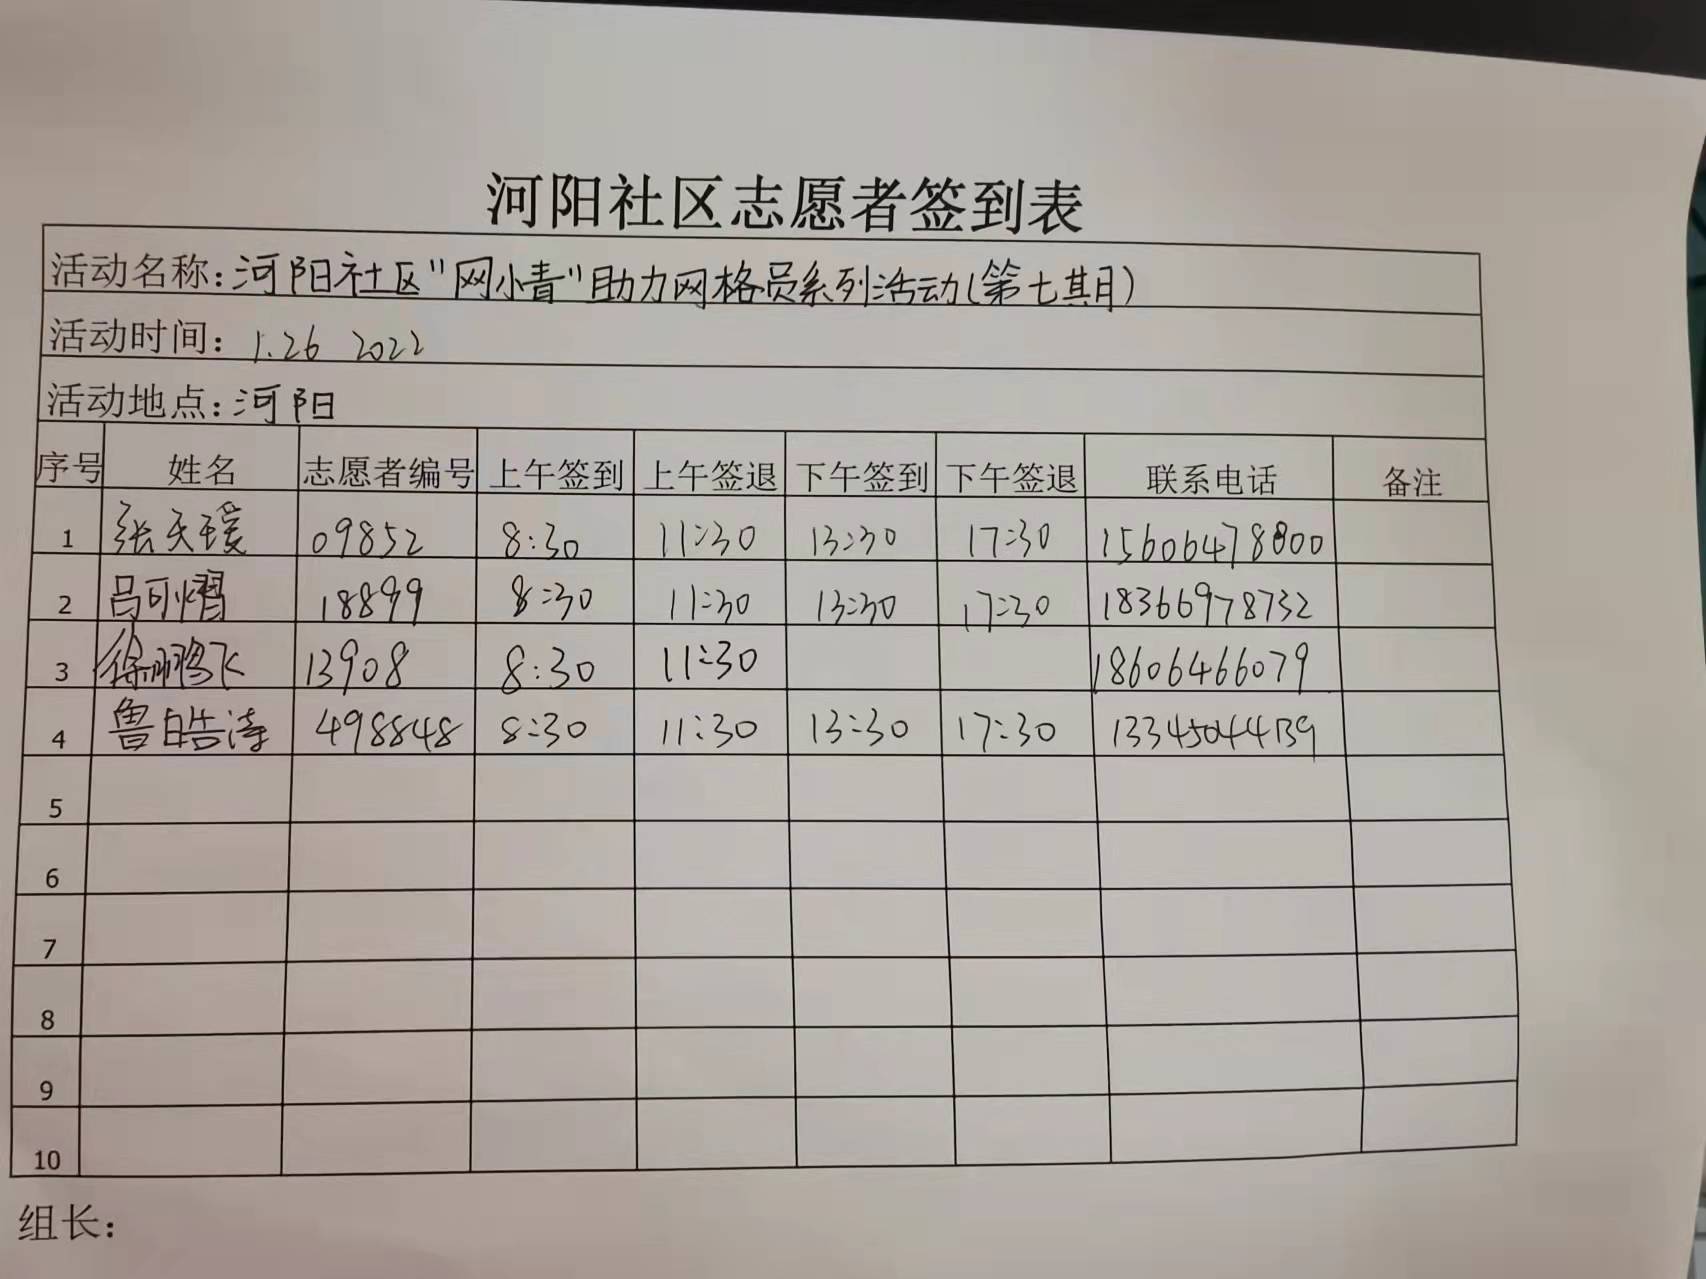 河阳社区志愿者签到表
活动名称:河阳社区"网小青"助力网格员系列活动(第七期)
活动时间: 1.26 2022
活动地点:河阳
序号 姓名 志愿者编号 上午签到 上午签退 下午签到 下午签退 联系电话 备注
1 张天瑷 09852 8:30 11:30 13:30 17:30 15606478800
2 吕可熠 18899 8:30 11:30 13:30 17:30 18366978732
3 徐鹏飞 13908 8:30 11:30 18606466079
4 鲁皓涛 498848 8:30 11:30 13:30 17:30 13345044139
5
6
7
8
9
10
组长: